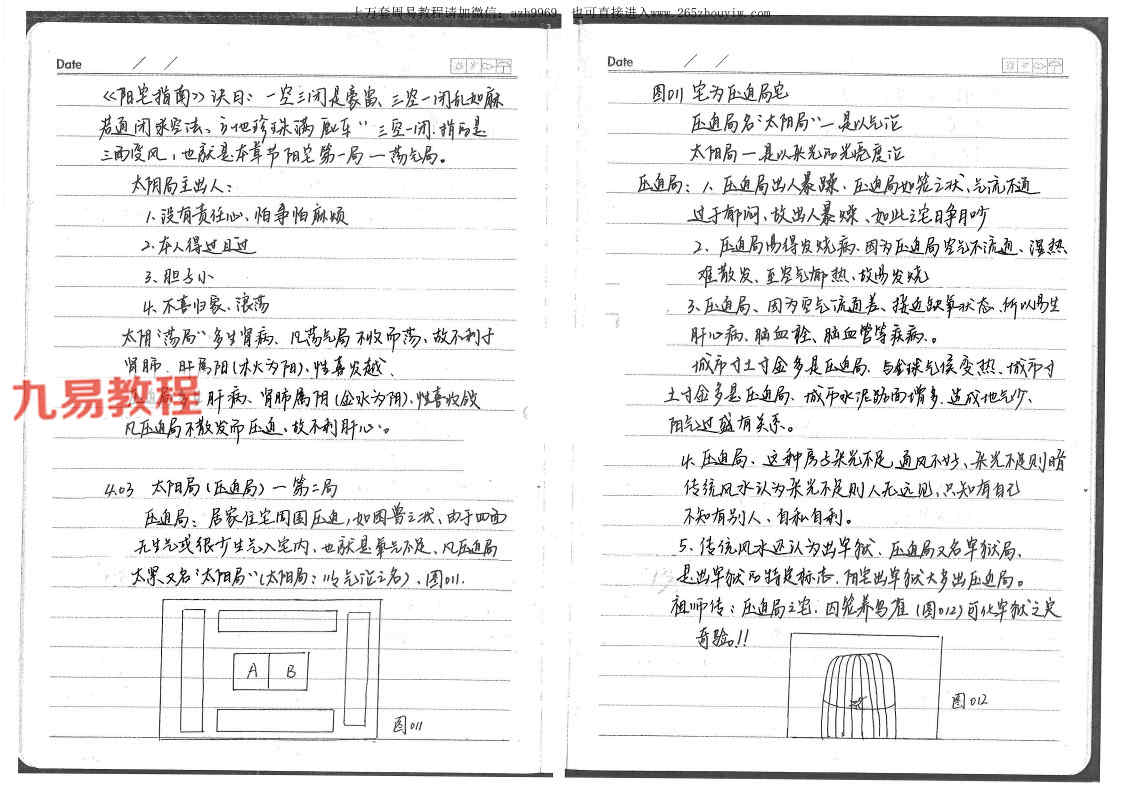 上万套周易教程请加微信：azh9969 也可直接进入www.265zhouyiw.com
Date / /
《阳宅指南》诀曰：一空三闭是豪富、三空一闭乱如麻
若通闭求空法、寸地珍珠满 车" 三空一闭.指的是
三面受风，也就是本章节阳宅第一局一荡气局。
太阴局主出人：
1.没有责任心、怕争怕麻烦
2.本人得过且过
3.胆子小
4.不喜归家、浪荡
太阴"荡局"多生肾病、凡荡气局不收而荡、故不利于
肾肺.肝属阳(木火为阳)、性喜发越、
九易教程
局 肝病、肾肺属阴(金水为阴).性喜收敛
凡压迫局不散发而压迫、故不利肝心。
4.03 太阳局(压迫局)一第二局
压迫局：居家住宅周围压迫，如困兽之状、由于四面
无生气或很少生气入宅内、也就是氧气不足、凡压迫局
太累又名"太阳局"(太阳局：以气论之名)、图011.
A B
图011
Date / /
图011 宅为压迫局宅
压迫局名"太阳局"一是以气论
太阳局一是以采光的光亮度论
压迫局：1、压迫局出人暴躁、压迫局如笼之状、气流不通
过于郁闷、故出人暴燥、如此之宅日争月吵
2、压迫局易得发烧病.因为压迫局空气不流通、湿热
难散发、至空气郁热、故易发烧
3、压迫局、因为空气流通差、接近缺氧状态、所以易生
肝心病、脑血栓、脑血管等疾病、。
城市寸土寸金多是压迫局、与全球气候变热、城市寸
土寸金多是压迫局、城市水泥路面增多.造成地气少、
阳气过盛有关系。
4.压迫局、这种房子采光不足、通风不好、采光不足则暗
传统风水认为采光不足则人无远见、只知有自己
不知有别人、自私自利。
5、传统风水还认为出牢狱、压迫局又名牢狱局、
是出牢狱的特定标志、阳宅出牢狱大多出压迫局。
祖师传：压迫局之宅、因笼养鸟雀(图012)可化牢狱之灾
奇验。!!
图012